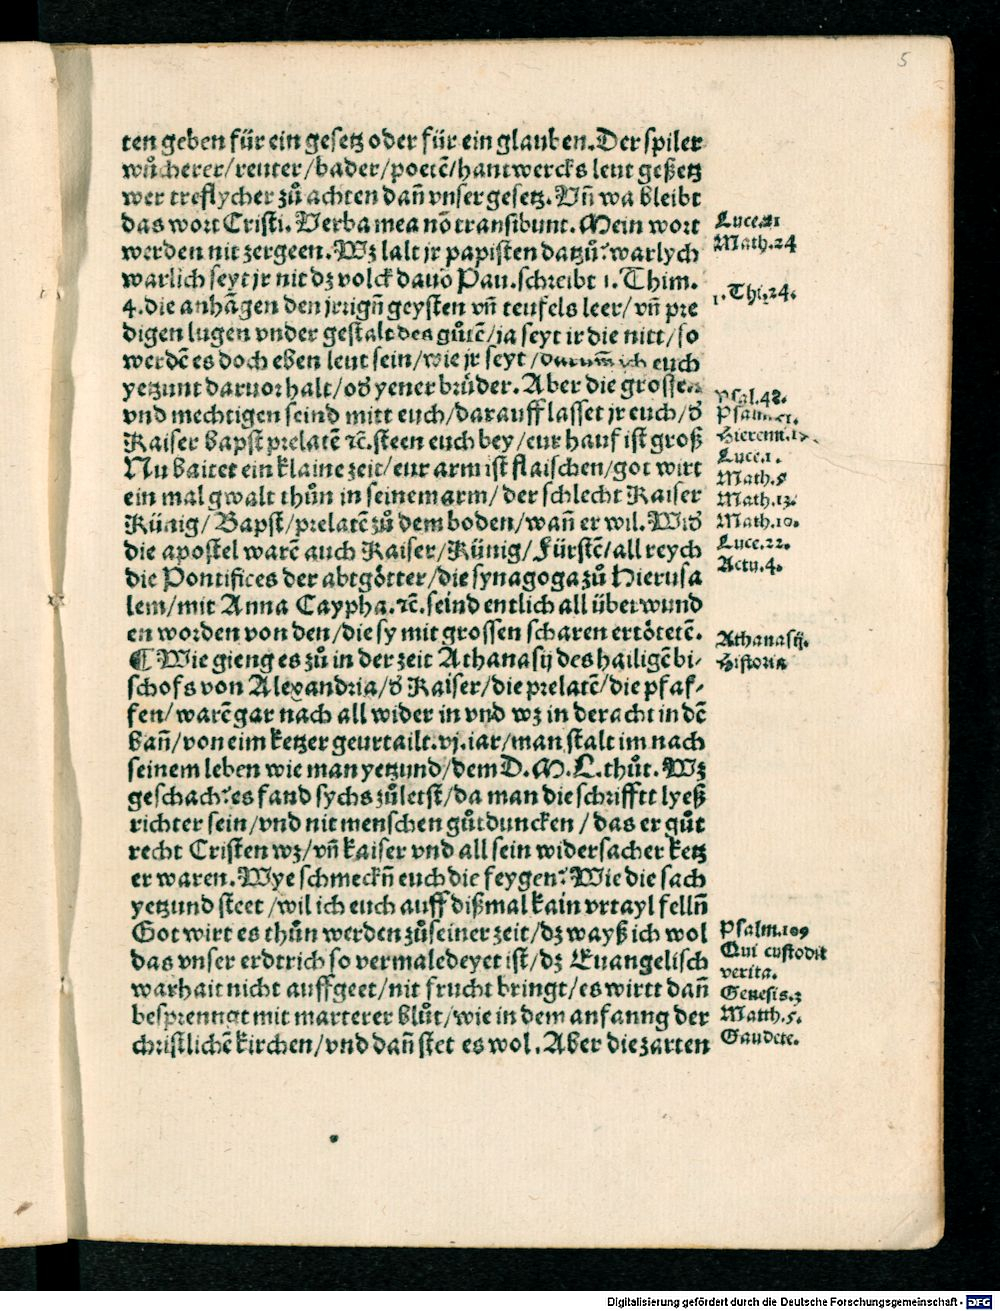 5
ten geben für ein gesetz oder für ein glauben. Der spiler
wůcherer/reuter/bader/poetẽ/hantwercks leut geßetz
wer treflycher zů achten dañ vnser gesetz. Vñ wa bleibt
das wort Cristi. Verba mea nõ transibunt. Mein wort
werden nit zergeen. Wz lalt jr papisten datzů? warlych
warlich seyt jr nit dz volck dauõ Pau. schreibt 1. Thim.
4. die anhãgen den jrrigñ geysten vñ teufels leer/vñ pre
digen lugen vnder gestalt des gůtẽ/ja seyt ir die nitt/so
werdẽ es doch eben leut sein/wie jr seyt/darumm ich euch
yetzunt daruor halt/oď yener brüder. Aber die grossen
vnd mechtigen seind mitt euch/darauff lasset jr euch/ď
Kaiser Bapst prelatẽ ⁊c. steen euch bey/eur hauf ist groß
Nu baitet ein klaine zeit/eur arm ist flaischen/got wirt
ein mal gwalt thůn in seinem arm/der schlecht Kaiser
Künig/Bapst/prelatẽ zů dem boden/wañ er wil. Wiď
die apostel warẽ auch Kaiser/Künig/Fürstẽ/all reych
die Pontifices der abtgötter/die synagoga zů Hierusa
lem/mit Anna Caypha. ⁊c. seind entlich all überwund
en worden von den/die sy mit grossen scharen ertötetẽ.
¶ Wie gieng es zů in der zeit Athanasij des hailigẽ bi-
schofs von Alexandria/ď Kaiser/die prelatẽ/die pfaf-
fen/warẽ gar nach all wider in vnd wz in der acht in dẽ
bañ/von eim ketzer geurtailt. vj. iar/man stalt im nach
seinem leben wie man yetzund/dem D. M. L. thůt. Wz
geschach? es fand sychs zůletst/da man die schrifftt lyeß
richter sein/vnd nit menschen gůtduncken/das er gůt
recht Cristen wz/vñ kaiser vnd all sein widersacher ketz
er waren. Wye schmeckñ euch die feygen? Wie die sach
yetzund steet/wil ich euch auff dißmal kain vrtayl fellñ
Got wirt es thůn werden zů seiner zeit/dz wayß ich wol
das vnser erdtrich so vermaledeyet ist/dz Euangelisch
warhait nicht auffgeet/nit frucht bringt/es wirtt dañ
besprenngt mit marterer blůt/wie in dem anfanng der
christlichẽ kirchen/vnd dañ stet es wol. Aber die zarten
Luce. 21
Math. 24
1. Thi. 4.
Psal. 48.
Hierem.
Luce. 1.
Math. 5
Math. 13.
Math. 10.
Luce. 22.
Actu. 4.
Athanasij.
Historia
Psalm. 109
Qui custodit
verita.
Genesis. 3
Matth. 5.
Gaudete.
Digitalisierung gefördert durch die Deutsche Forschungsgemeinschaft - DFG